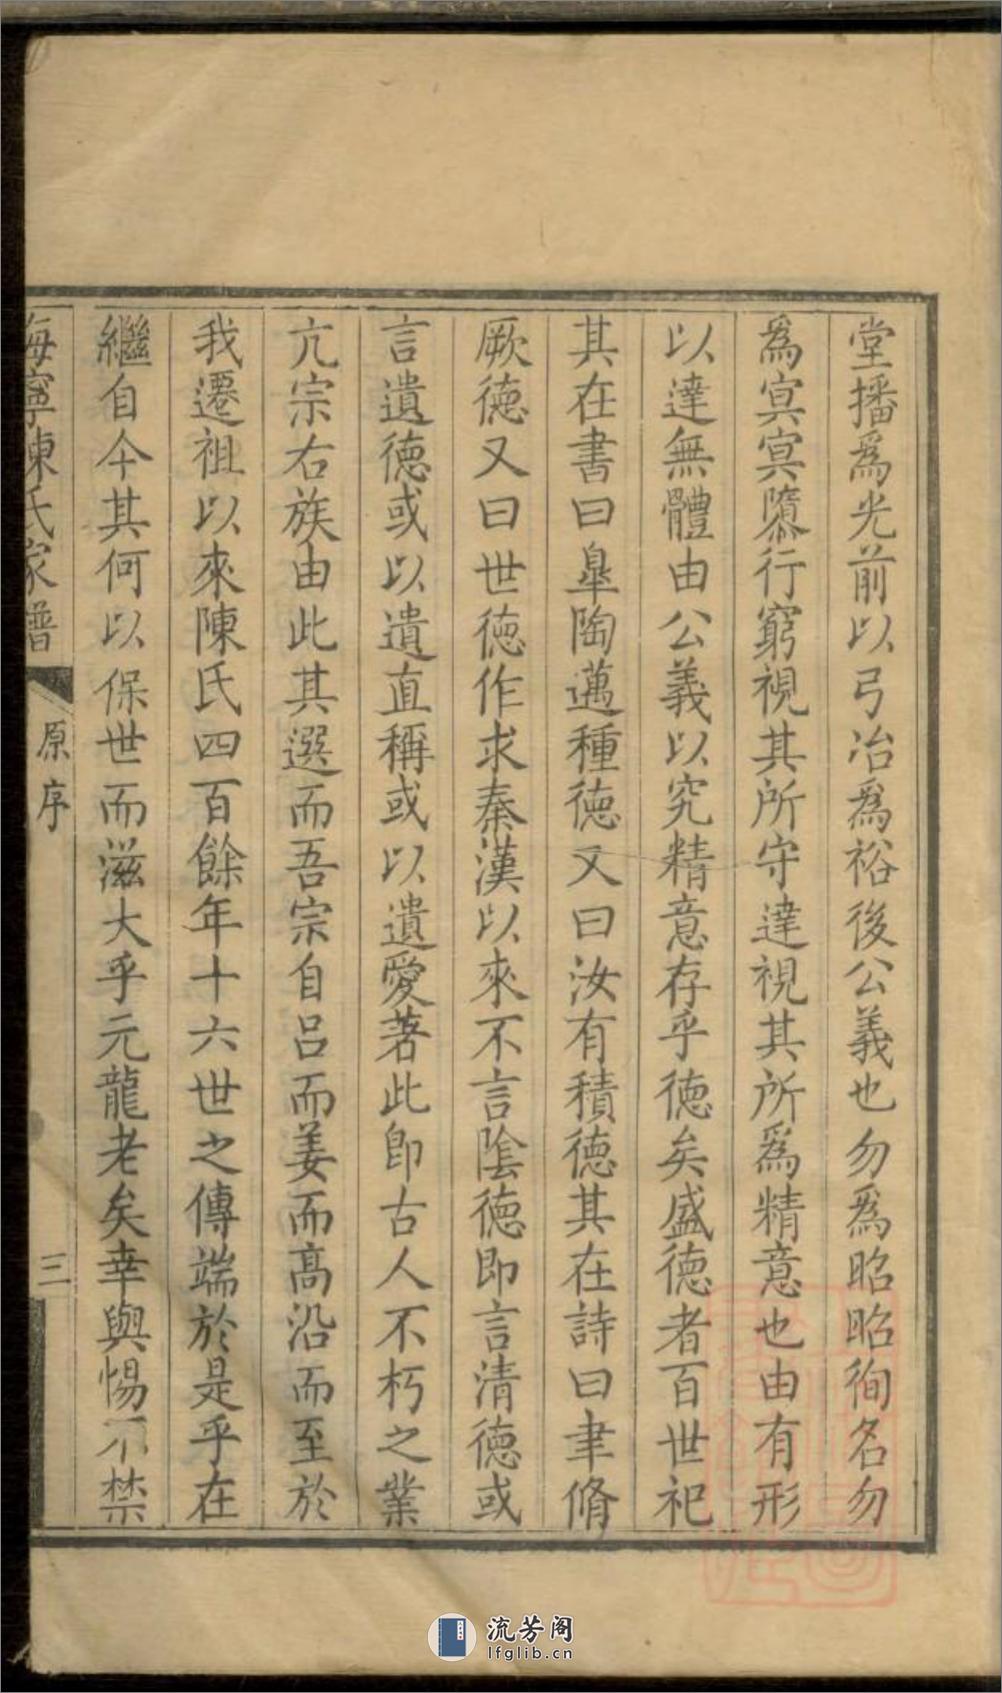 堂播爲光前以弓冶爲裕後公義也勿爲昭昭徇名勿
爲冥冥隳行窮視其所守達視其所爲精意也由有形
以達無體由公義以究精意存乎德矣盛德者百世祀
其在書曰臯陶邁種德又曰汝有積德其在詩曰聿脩
厥德又曰世德作求秦漢以來不言陰德即言清德或
言遺德或以遺直稱或以遺愛著此卽古人不朽之業
亢宗右族由此其選而吾宗自呂而姜而高沿而至於
我遷祖以來陳氏四百餘年十六世之傳端於是乎在
繼自今其何以保世而滋大乎元龍老矣幸與惕不禁
海寧陳氏家譜
原序
三
流芳阁
lfglib.cn